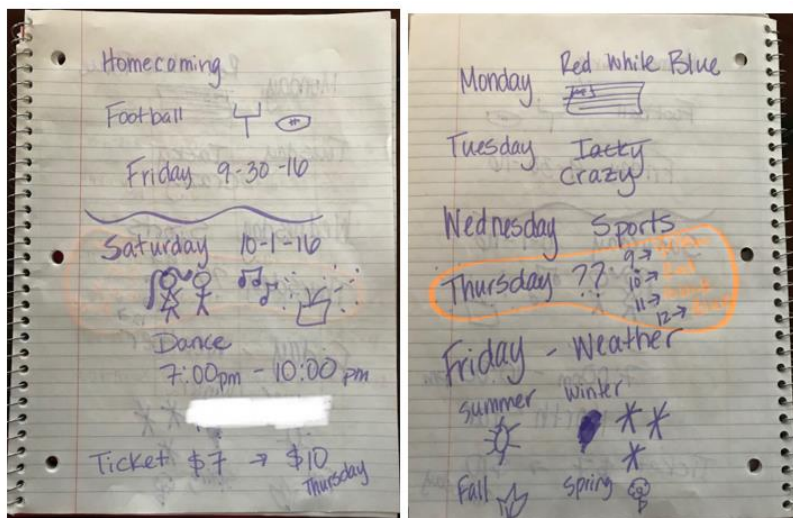 Homecoming
Football
Friday 9-30-16
Saturday 10-1-16
Dance
7:00pm - 10:00 pm
Ticket $7 → $10
Thursday
Monday Red White Blue
Tuesday Tacky
Crazy
Wednesday Sports
Thursday ??
9→
10→
11→
12→
Friday - Weather
Summer Winter
Fall Spring